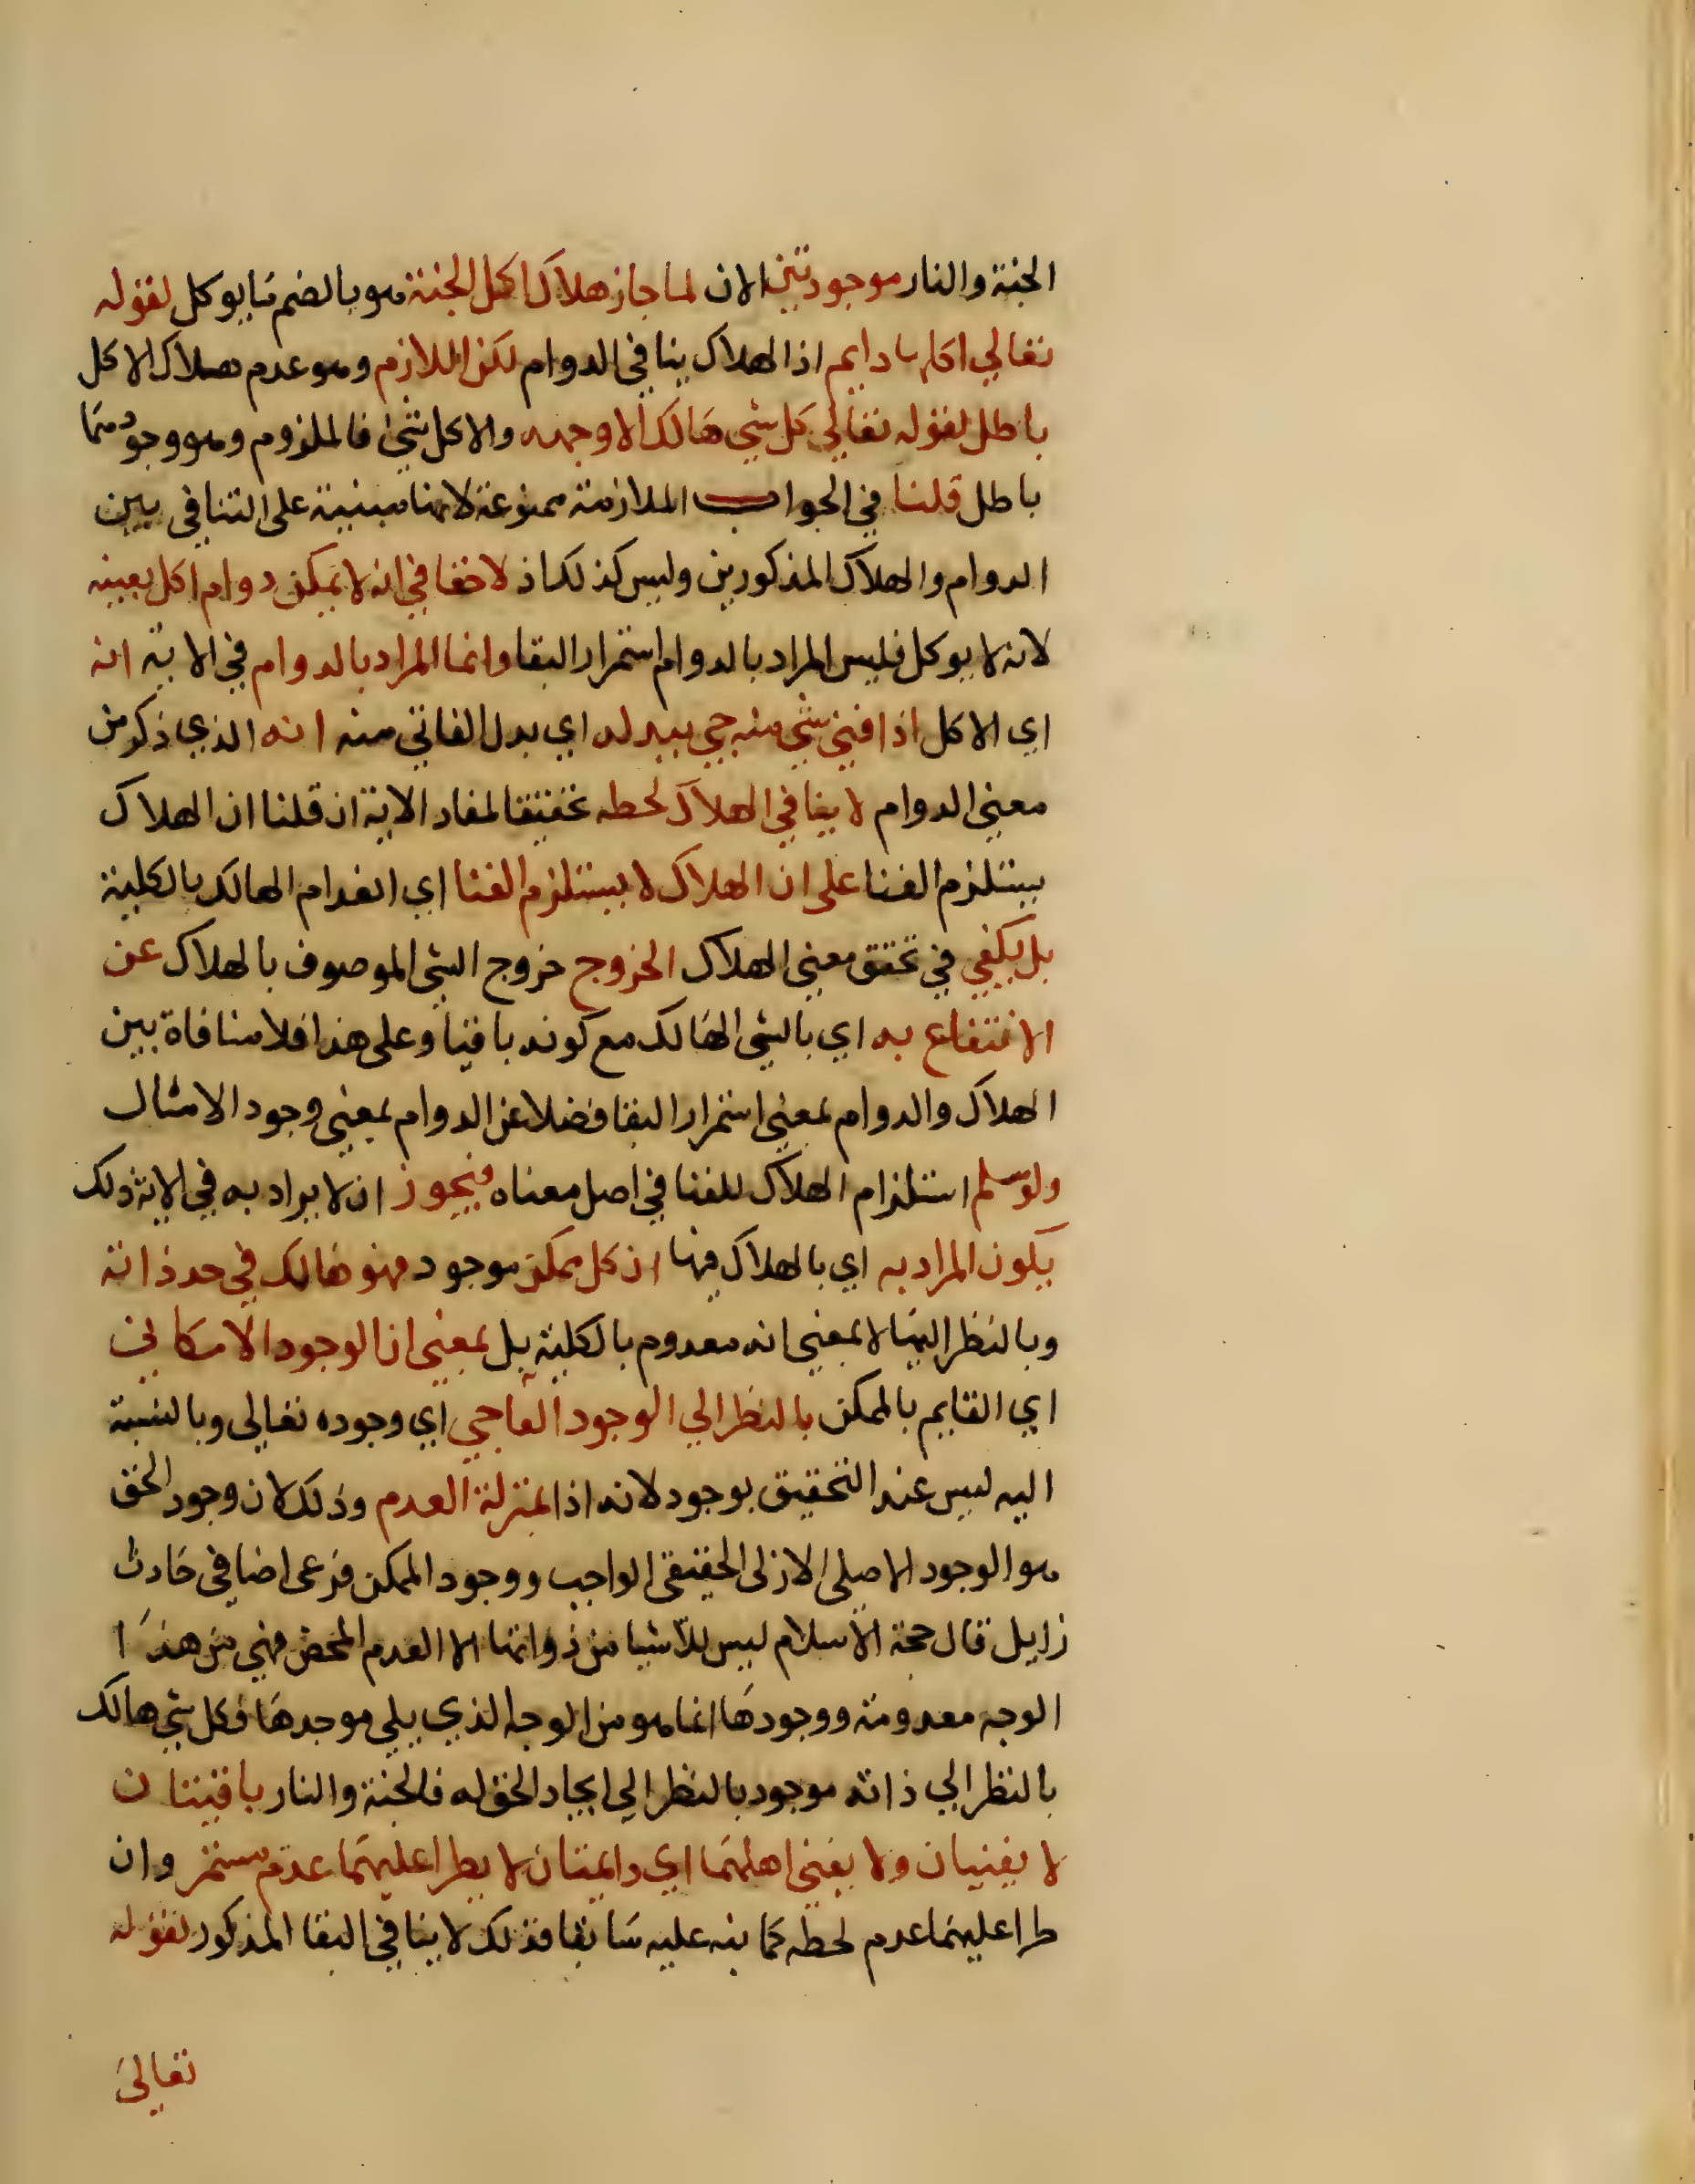 الجنة والنار موجودتين الان لما جاز هلاك اكل الجنة وهو بالضم ما يوكل لقوله
تعالي اكلها دايم اذ الهلاك ينافي الدوام لكن اللازم وهو عدم هلاك الاكل
باطل لقوله تعالي كل شي هالك الا وجهه والاكل شي فالملزوم وهو وجودهما
باطل قلنا في الجواب الملازمة ممنوعة لانها مبنية على التنافي بين
الدوام والهلاك المذكورين وليس كذلك اذ لا خفا في انه لا يمكن دوام اكل بعينه
لانه لا يوكل فليس المراد بالدوام استمرار البقا وانما المراد بالدوام في الاية انه
اي الاكل اذا فني شي منه جي ببدله اي بدل الفاني منه انه الذي ذكر من
معني الدوام لا ينافي الهلاك لحظه تحقيقا لمفاد الاية ان قلنا ان الهلاك
يستلزم الفنا على ان الهلاك لا يستلزم الفنا اي انعدام الهالك بالكلية
بل يكفي في تحقق معني الهلاك الخروج خروج الشي الموصوف بالهلاك عن
الانتفاع به اي بالشي الهالك مع كونه باقيا وعلى هذا فلا منافاة بين
الهلاك والدوام بمعني استمرار البقا فضلا عن الدوام بمعني وجود الامثال
ولو سلم استلزام الهلاك للفنا في اصل معناه فيجوز ان لا يراد به في الاية ذلك
يكون المراد به اي بالهلاك فيها ان كل ممكن موجود فهو هالك في حد ذاته
وبالنظر اليها لا بمعني انه معدوم بالكلية بل بمعني ان الوجود الامكاني
اي القايم بالممكن بالنظر الي الوجود الواجبي اي وجوده تعالي وبالنسبة
اليه ليس عند التحقيق بوجود لانه اذا بمنزلة العدم وذلك لان وجود الحق
هو الوجود الاصلي الازلي الحقيقي الواجب ووجود الممكن فرعي اضافي حادث
زايل قال حجة الاسلام ليس للاشيا من ذواتها الا العدم المحض فهي من هذا
الوجه معدومة ووجودها انما هو من الوجه الذي يلي موجدها فكل شي هالك
بالنظر الي ذاته موجود بالنظر الي ايجاد الحق له فالجنة والنار باقيتان
لا يفنيان ولا يفني اهلهما اي دايمتان لا يطرا عليهما عدم مستمر وان
طرا عليهما عدم لحظه كما نبه عليه سابقا فذلك لا ينافي البقا المذكور لقوله
تعالي